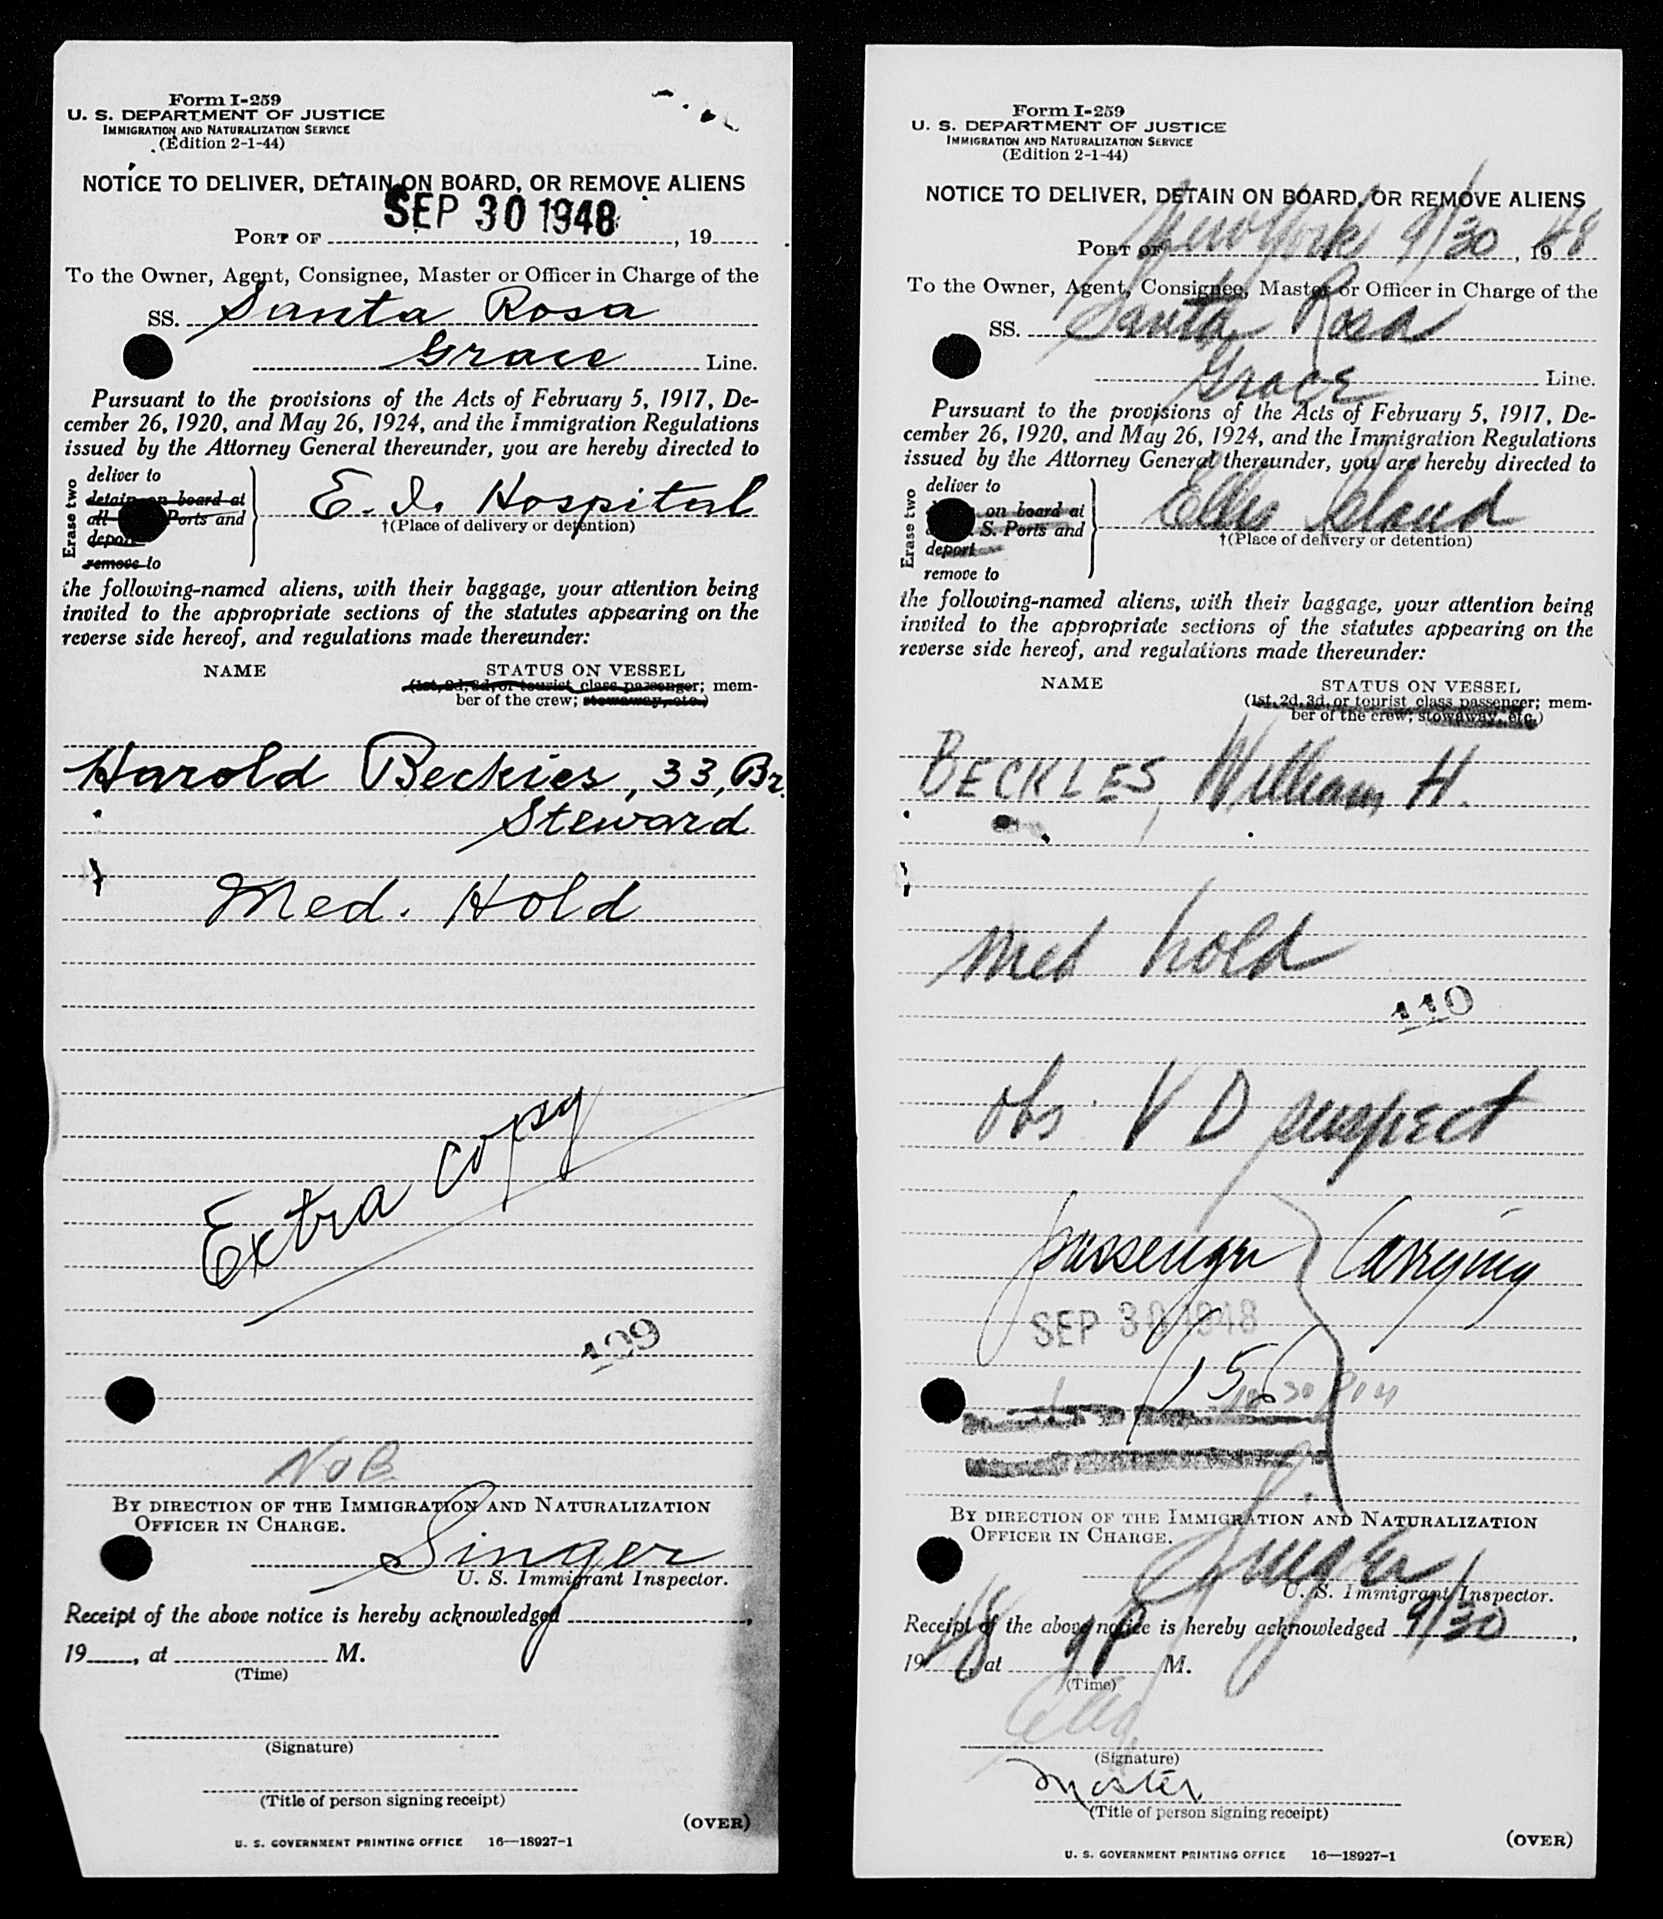 Form I-259
U. S. DEPARTMENT OF JUSTICE
IMMIGRATION AND NATURALIZATION SERVICE
(Edition 2-1-44)
NOTICE TO DELIVER, DETAIN ON BOARD, OR REMOVE ALIENS
SEP 30 1948
PORT OF , 19
To the Owner, Agent, Consignee, Master or Officer in Charge of the
SS. Santa Rosa
Grace Line.
Pursuant to the provisions of the Acts of February 5, 1917, De-
cember 26, 1920, and May 26, 1924, and the Immigration Regulations
issued by the Attorney General thereunder, you are hereby directed to
Erase two
deliver to
detain on board at
all Ports and
deport
remove to
E. I. Hospital
†(Place of delivery or detention)
the following-named aliens, with their baggage, your attention being
invited to the appropriate sections of the statutes appearing on the
reverse side hereof, and regulations made thereunder:
NAME STATUS ON VESSEL
(1st, 2d, 3d, or tourist class passenger; mem-
ber of the crew; stowaway, etc.)
Harold Beckies, 33, Br.
Steward
Med. Hold
Extra copy
109
NOB
BY DIRECTION OF THE IMMIGRATION AND NATURALIZATION
OFFICER IN CHARGE.
Singer
U. S. Immigrant Inspector.
Receipt of the above notice is hereby acknowledged ,
19 , at M.
(Time)
(Signature)
(Title of person signing receipt)
(OVER)
U. S. GOVERNMENT PRINTING OFFICE 16—18927-1
Form I-259
U. S. DEPARTMENT OF JUSTICE
IMMIGRATION AND NATURALIZATION SERVICE
(Edition 2-1-44)
NOTICE TO DELIVER, DETAIN ON BOARD, OR REMOVE ALIENS
PORT OF New York 9/30, 1948
To the Owner, Agent, Consignee, Master or Officer in Charge of the
SS. Santa Rosa
Grace Line.
Pursuant to the provisions of the Acts of February 5, 1917, De-
cember 26, 1920, and May 26, 1924, and the Immigration Regulations
issued by the Attorney General thereunder, you are hereby directed to
Erase two
deliver to
on board at
S. Ports and
deport
remove to
Ellis Island
†(Place of delivery or detention)
the following-named aliens, with their baggage, your attention being
invited to the appropriate sections of the statutes appearing on the
reverse side hereof, and regulations made thereunder:
NAME STATUS ON VESSEL
(1st, 2d, 3d, or tourist class passenger; mem-
ber of the crew; stowaway, etc.)
BECKLES, William H.
med hold
110
obs V D suspect
passenger Carrying
SEP 30 1948
BY DIRECTION OF THE IMMIGRATION AND NATURALIZATION
OFFICER IN CHARGE.
Singer
U. S. Immigrant Inspector.
Receipt of the above notice is hereby acknowledged 9/30,
1948, at 9 P M.
(Time)
(Signature)
Master
(Title of person signing receipt)
(OVER)
U. S. GOVERNMENT PRINTING OFFICE 16—18927-1